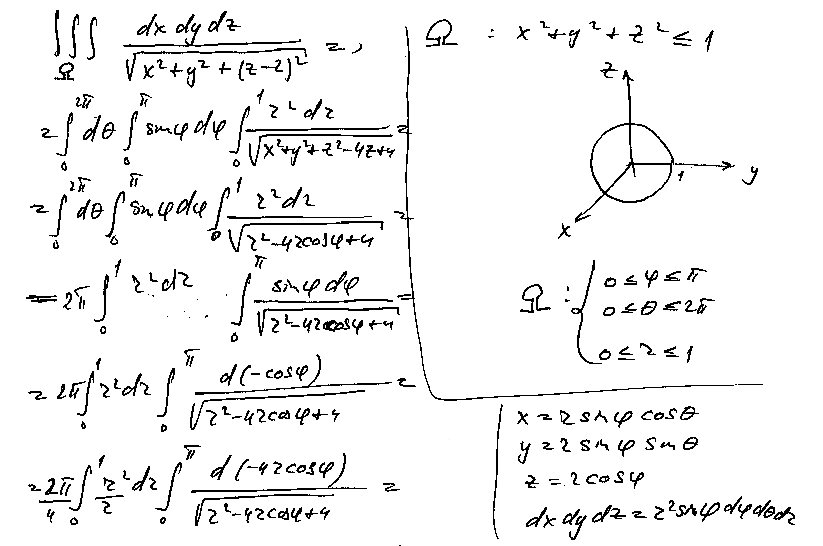 ∭_Ω dx dy dz / √(x²+y²+(z-2)²) =,
= ∫₀^{2π} dθ ∫₀^π sinφ dφ ∫₀¹ r² dr / √(x²+y²+z²-4z+4) =
= ∫₀^{2π} dθ ∫₀^π sinφ dφ ∫₀¹ r² dr / √(r²-4r cosφ+4) =
= 2π ∫₀¹ r² dr ∫₀^π sinφ dφ / √(r²-4r cosφ+4) =
= 2π ∫₀¹ r² dr ∫₀^π d(-cosφ) / √(r²-4r cosφ+4) =
= 2π/4 ∫₀¹ r²/r dr ∫₀^π d(-4r cosφ) / √(r²-4r cosφ+4) =
Ω : x²+y²+z² ≤ 1
z
1
y
x
Ω : { 0 ≤ φ ≤ π
0 ≤ θ ≤ 2π
0 ≤ r ≤ 1
x = r sinφ cosθ
y = r sinφ sinθ
z = r cosφ
dx dy dz = r² sinφ dφ dθ dr